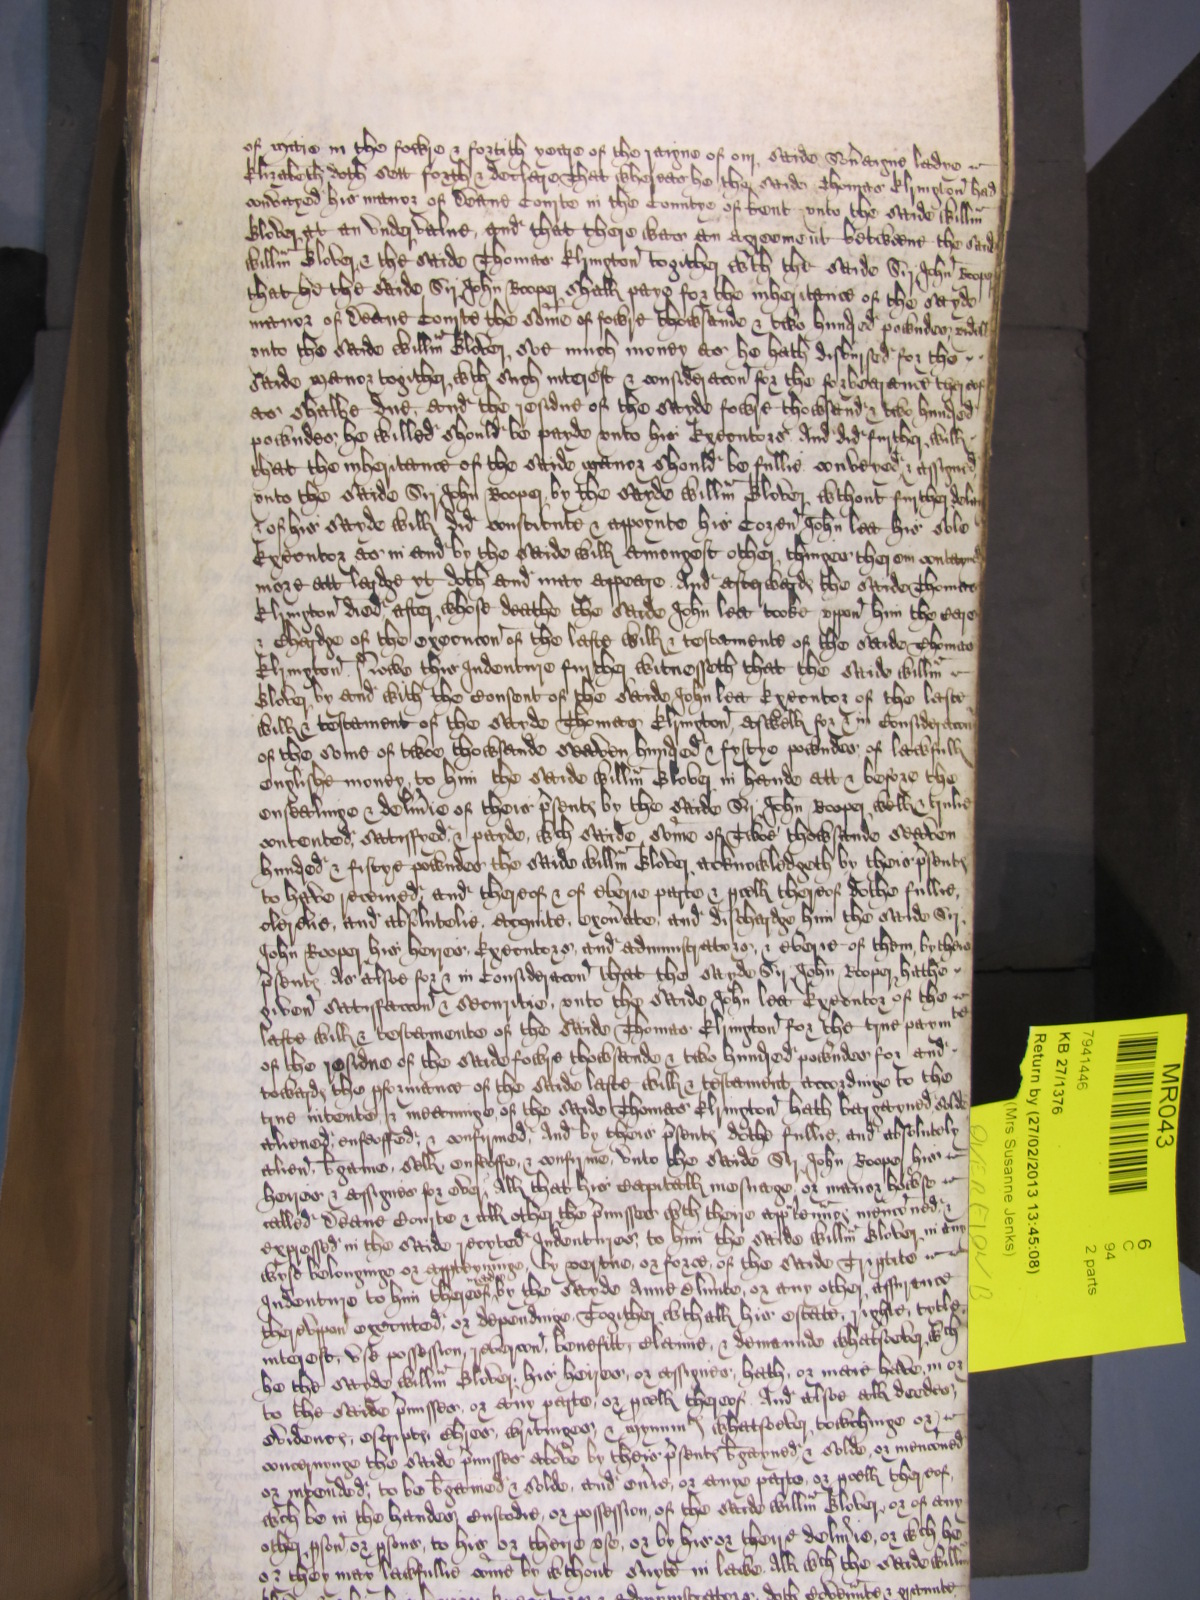 of maie in the fowre & fortith yeare of the raigne of our saide Sov'aigne ladye
Elizabeth doth sett forth & declare That whereas he the saide Thomas Elrington had
convayed his manor of Deane Courte in the Countye of Kent unto the saide Willm
Glover at an undervalue, and that there was an agreement betweene the said
Willm Glover & the saide Thomas Elrington togither wth the saide Sir John Rooper
that he the saide Sir John Rooper shall paye for the inheritance of the sayde
manor of Deane Courte the some of fowre thowsande & two hundred powndes
unto the saide Willm Glover, soe much money as he hath disbursed for the
saide manor togither wth such interest & consideracon for the forbearance thereof
as shalbe due, and the residue of the sayde fowre thowsand & two hundred
powndes he willed should be payde unto his Executors. And did further will
that the inheritance of the saide manor should be fullie conveyed & assigned
unto the saide Sir John Rooper by the sayde Willm Glover wthout further delay
& of his sayde will did constitute & appoynte his Cozen John Lea his sole
Executor as in and by the saide will amongest other thinges therein contayned
more att lardge yt doth and may appeare. And afterwards the saide Thomas
Elrington died after whose deathe the saide John Lea tooke uppon him the care
& Chardge of the execucon of the laste will & testamente of the saide Thomas
Elrington. Nowe this Indenture further witnesseth that the saide Willm
Glover by and with the consent of the saide John Lea Executor of the laste
will & testament of the sayde Thomas Elrington, aswell for & in Consideracon
of the some of twoe thowsande seaven hundred & fyftye powndes of lawfull
englishe money, to him the saide Willm Glover in hande att & before the
ensealinge & deliv'ie of theis p'sents by the saide Sir John Rooper well & trulie
contented, satisfyed, & payde, wch saide some of Twoe thowsande seaven
hundred & fiftye powndes the saide Willm Glover acknowledgeth by theis p'sents
to have receaved, and thereof & of everie parte & p'cell thereof dothe fullie,
clerelie, and absolutelie, acquite, exon'ate, and dischardge him the saide Sir
John Rooper his heires, Executors, and administrators, & everie of them, by theis
p'sents. As alsoe for & in Consideracon that the sayde Sir John Rooper hathe
given satisfaccon & securitie, unto the saide John Lea Executor of the
laste will & testamente of the saide Thomas Elrington for the true paymte
of the residue of the saide fowre thowsande & two hundred powndes for and
towards the p'formance of the saide laste will & testament accordinge to the
true intente, & meaninge of the saide Thomas Elrington hath bargayned, solde
aliened, enfeoffed, & confirmed, And by theis p'sents dothe fullie, and absolutely
alien, b'gaine, sell, enfeoffe, & confirme, unto the saide Sir John Rooper his
heires & assignes for ever, All that his Capitall mesuage, or manor howse
called Deane Courte & all other the p'misses wth there app'ten'nces menc'oned, &
expressed in the saide recyted Indentures, to him the saide Willm Glover in any
wyse belonginge or apperteyninge, by vertue, or force, of the saide Tri'ptite
Indenture to him thereof made by the sayde Anne Clunte, or any other assurance
thereupon executed, or dependinge. Togither wth all his estate, right, tytle,
interest, use possession, rev'con, benefitt, Clayme, & demaunde whatsoever, wch
he the sayde Willm Glover, his heires, or assignes, hath, or maie have, in or
to the saide p'misses, or any parte, or p'cell thereof. And alsoe all deedes,
evidencs, escripts, Ch'es, writinges, & mynim'ts whatsoever, towchinge or
concerninge the saide p'misses above by theis p'sents b'gayned & solde, or menconed
or intended, to be b'gained & solde, and ev'ie, or anye parte, or p'cell thereof,
wch be in the handes, custodie, or possession, of the saide Willm Glover, or of any
other p'son, or p'sons, to his, or there use, or by his or there deliv'ie, or wch he
or they may lawfullie come by wthout suyte in lawe. All wch the saide Willm
MR043
7941446
KB 27/1376
Return by (27/02/2013 13:45:08)
(Mrs Susanne Jenks)
6
C
94
2 parts